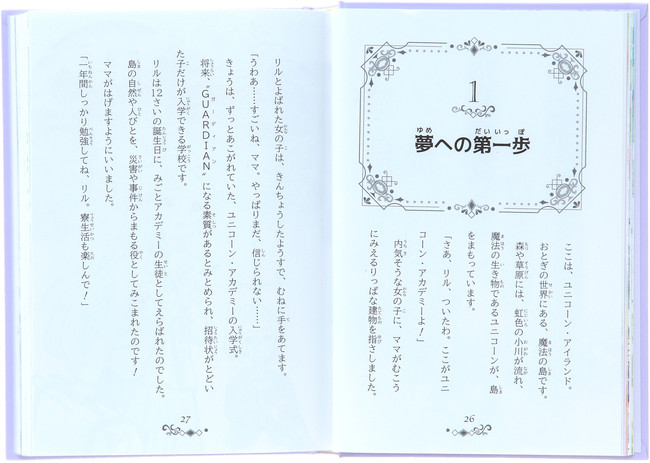 1
夢への第一歩
ここは、ユニコーン・アイランド。
おとぎの世界にある、魔法の島です。
森や草原には、虹色の小川が流れ、
魔法の生き物であるユニコーンが、島
をまもっています。
「さあ、リル、ついたわ。ここがユニ
コーン・アカデミーよ!」
内気そうな女の子に、ママがむこう
にみえるりっぱな建物を指さしました。
26
リルとよばれた女の子は、きんちょうしたようすで、むねに手をあてます。
「うわあ……すごいね、ママ。やっぱりまだ、信じられない……」
きょうは、ずっとあこがれていた、ユニコーン・アカデミーの入学式。
将来、“GUARDIAN”になる素質があるとみとめられ、招待状がとどい
た子だけが入学できる学校です。
リルは12さいの誕生日に、みごとアカデミーの生徒としてえらばれたのでした。
島の自然や人びとを、災害や事件からまもる役としてみこまれたのです!
ママがはげますようにいいました。
「一年間しっかり勉強してね、リル。寮生活も楽しんで!」
27